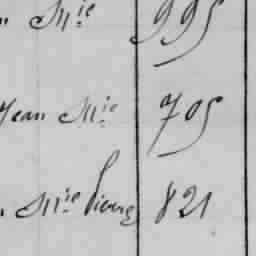 Mie 995
Jean Mie 705
Mie Pierre 821